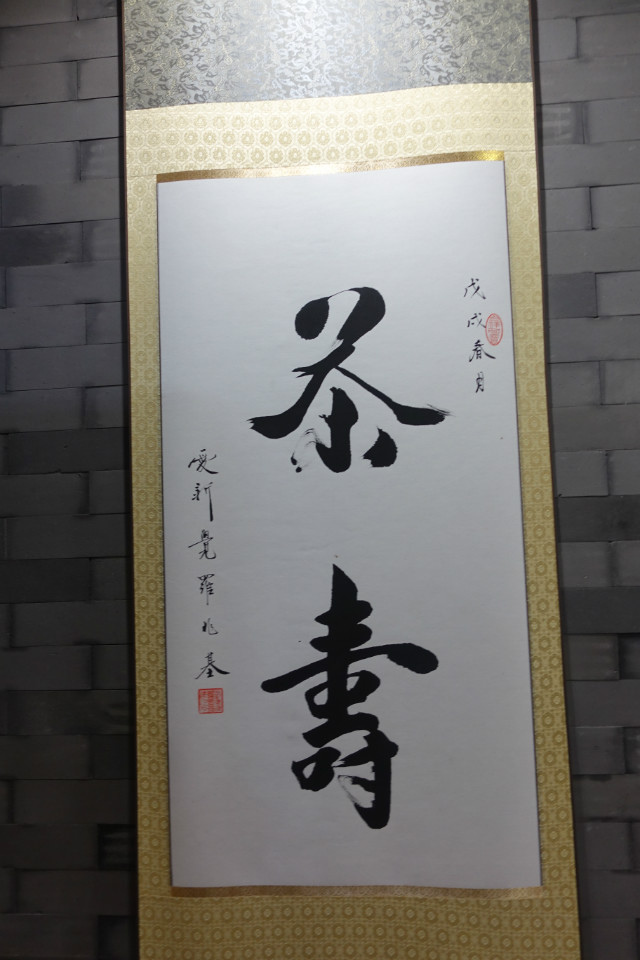 戊戌春月
茶壽
愛新覺羅兆基